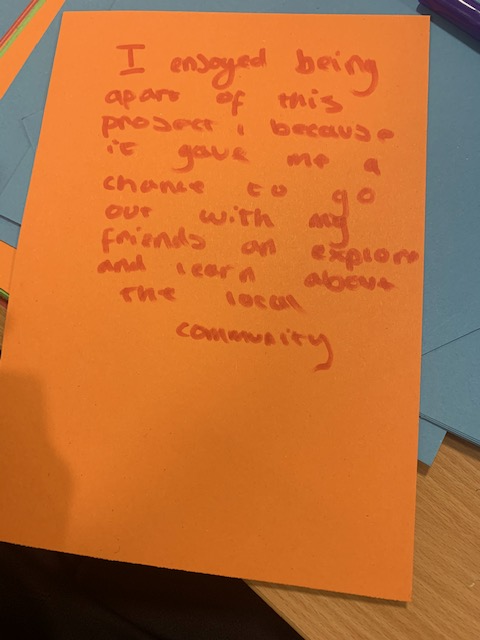 I enjoyed being
apart of this
project, because
it gave me a
chance to go
out with my
friends an explore
and learn about
the local
community